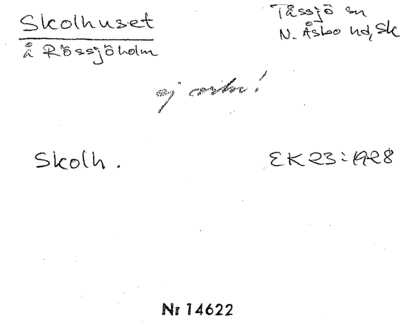 Skolhuset
å Rössjöholm
Tåssjö sn
N. Åsbo hd, Sk
ej
Skolh.
EK 23:1928
Nr 14622